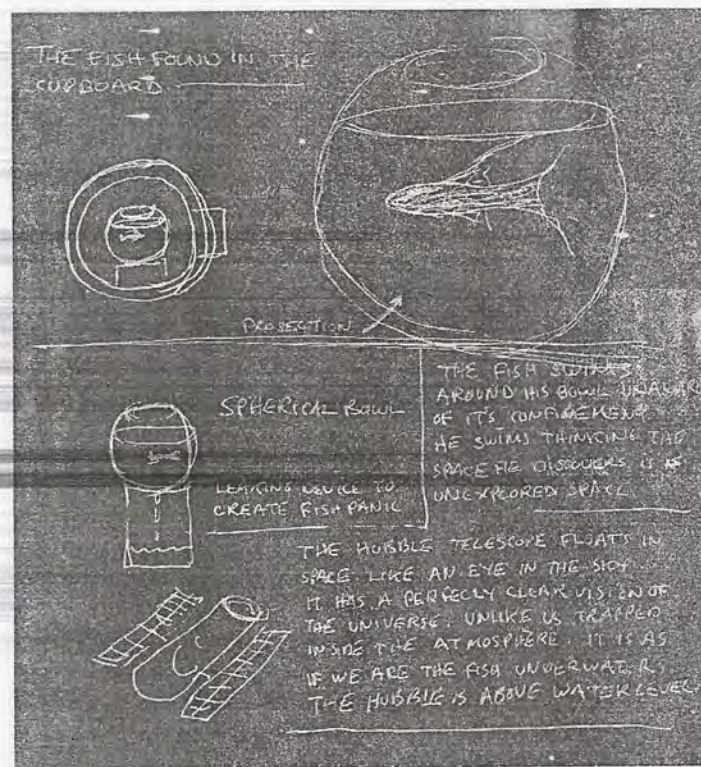 THE FISH FOUND IN THE
CUPBOARD
PROJECTION
SPHERICAL BOWL
LEAKING DEVICE TO
CREATE FISH PANIC
THE FISH SWIMS
AROUND HIS BOWL UNAWARE
OF IT'S CONFINEMENT
HE SWIMS THINKING THE
SPACE HE DISCOVERS IS
UNEXPLORED SPACE
THE HUBBLE TELESCOPE FLOATS IN
SPACE LIKE AN EYE IN THE SKY
IT HAS A PERFECLY CLEAR VISION OF
THE UNIVERSE. UNLIKE US TRAPPED
INSIDE THE ATMOSPHERE. IT IS AS
IF WE ARE THE FISH UNDERWATER
THE HUBBLE IS ABOVE WATER LEVEL